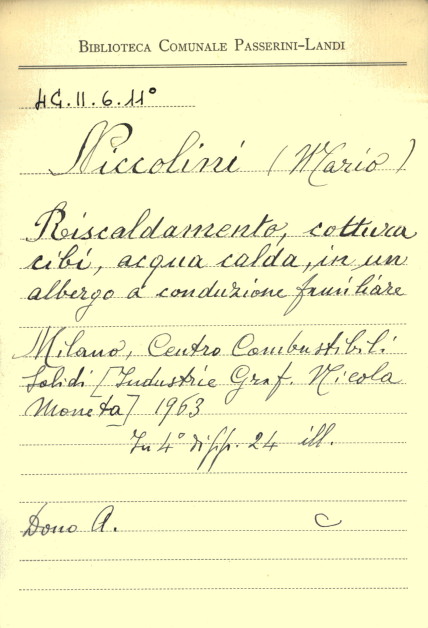 BIBLIOTECA COMUNALE PASSERINI-LANDI
4G.II.6.11°
Niccolini (Mario)
Riscaldamento, cottura
cibi, acqua calda, in un
albergo a conduzione familiare
Milano, Centro Combustibili
Solidi [Industrie Graf. Nicola
Moneta] 1963
In 4° di pp. 24 ill.
Dono A.
C